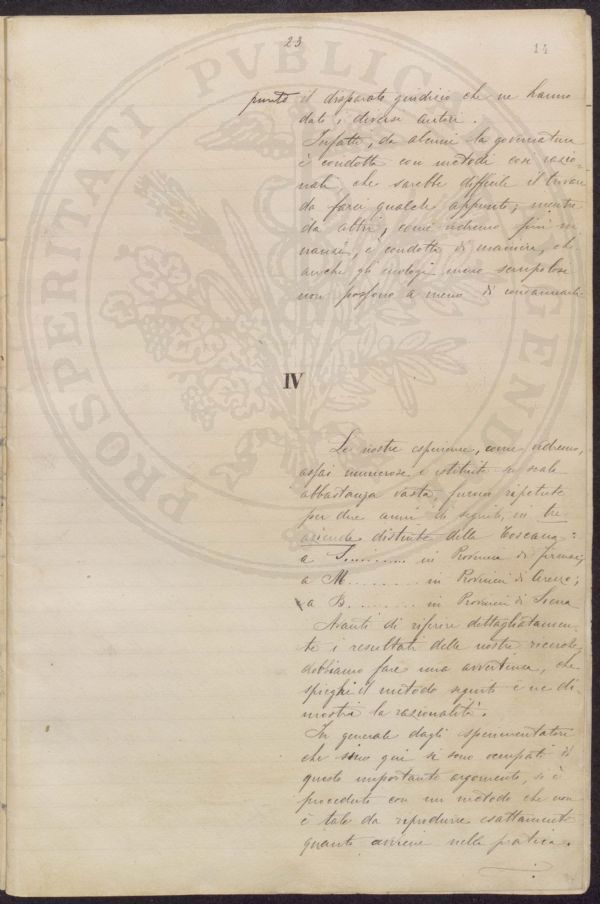 23
14
punto il disparato giudizio che ne hanno
dato i diversi autori.
Infatti, da alcuni la governatura
è condotta con metodi così razio-
nali, che sarebbe difficile il trovare
da farci qualche appunto; mentre
da altri, come vedremo più in-
nanzi, è condotta di maniera, che
anche gli enologi meno scrupolosi
non possono a meno di condannarla.
IV
Le nostre esperienze, come vedremo,
assai numerose e istituite su scala
abbastanza vasta, furono ripetute
per due anni di seguito, in tre
aziende distinte della Toscana:
a S.......... in Provincia di Firenze;
a M.......... in Provincia di Arezzo;
a B.......... in Provincia di Siena
Avanti di riferire dettagliatamen-
te i resultati delle nostre ricerche,
dobbiamo fare una avvertenza, che
spieghi il metodo seguito e ne di-
mostri la razionalità.
In generale dagli sperimentatori
che sino qui si sono occupati di
questo importante argomento, si è
proceduto con un metodo che non
è tale da riprodurre esattamente
quanto avviene nella pratica.
PROSPERITATI PVBLICAE AVGENDAE